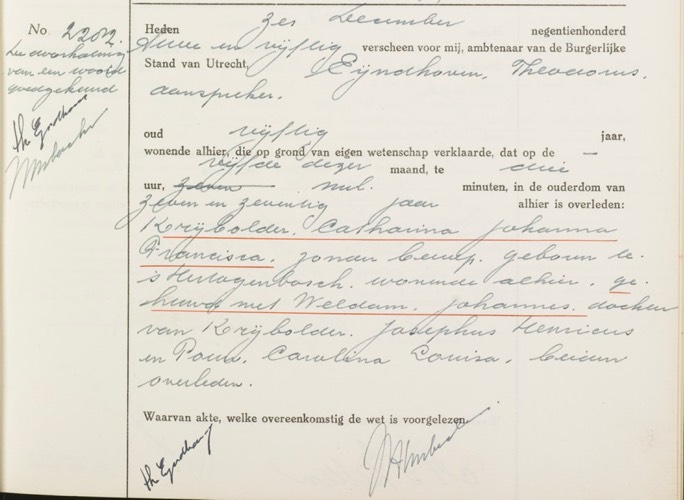 No 2202
De doorhaling
van een woord
goedgekeurd
Th Eyndhoven
Heden zes December negentienhonderd
en vijftig verscheen voor mij, ambtenaar van de Burgerlijke
Stand van Utrecht, Eijndhoven, Theodorus,
aanspreker,
oud vijftig jaar,
wonende alhier, die op grond van eigen wetenschap verklaarde, dat op de –
vijfde dezer maand, te drie
uur, zeven nul minuten, in de ouderdom van
zeven en zeventig jaar alhier is overleden:
Krijbolder, Catharina Johanna
Francisca, zonder beroep, geboren te
's Hertogenbosch, wonende alhier, ge-
huwd met Weldam, Johannes, dochter
van Krijbolder, Josephus Henricus
en Carolina Louisa, beiden
overleden.
Waarvan akte, welke overeenkomstig de wet is voorgelezen.
Th Eyndhoven